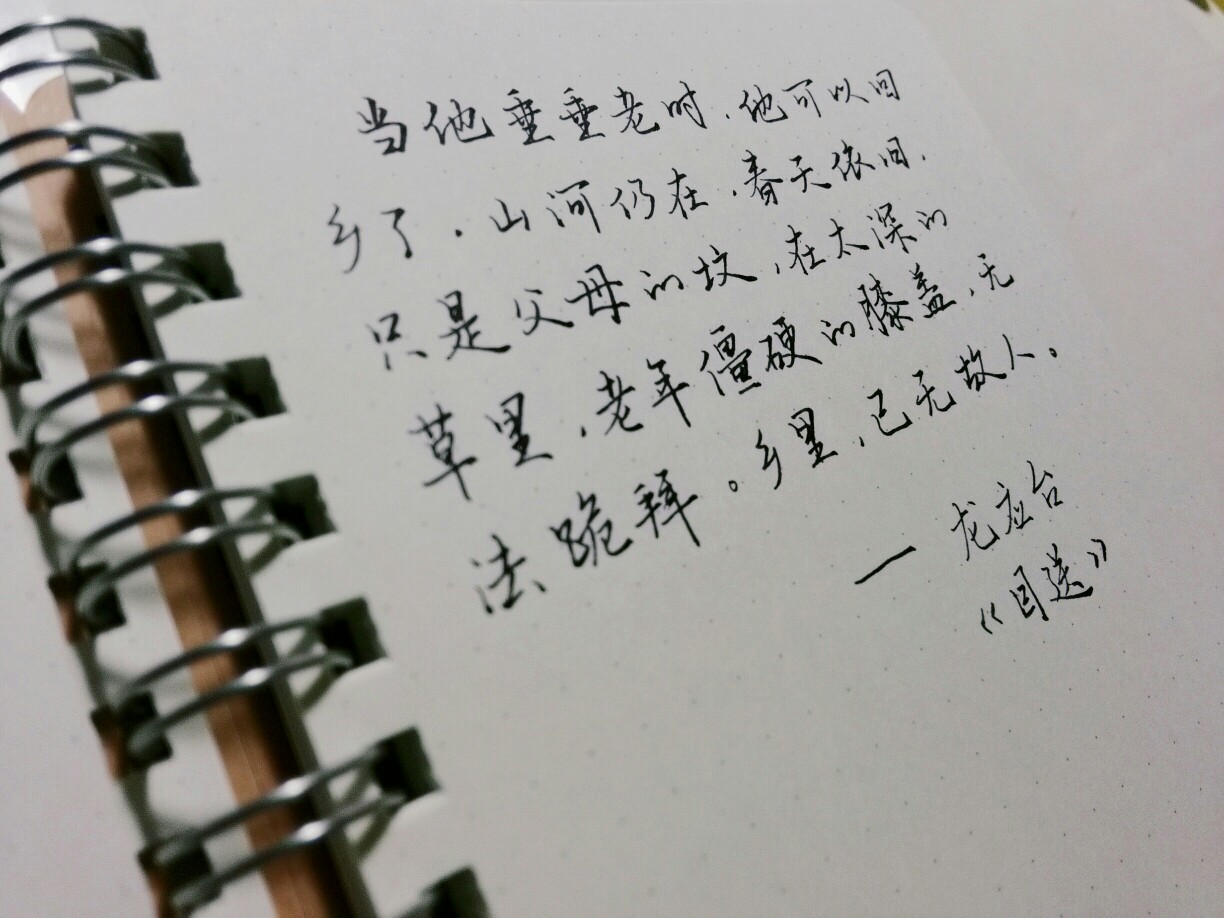 当他垂垂老时，他可以回
乡了，山河仍在，春天依旧，
只是父母的坟，在太深的
草里，老年僵硬的膝盖，无
法跪拜。乡里，已无故人。
— 龙应台
《目送》